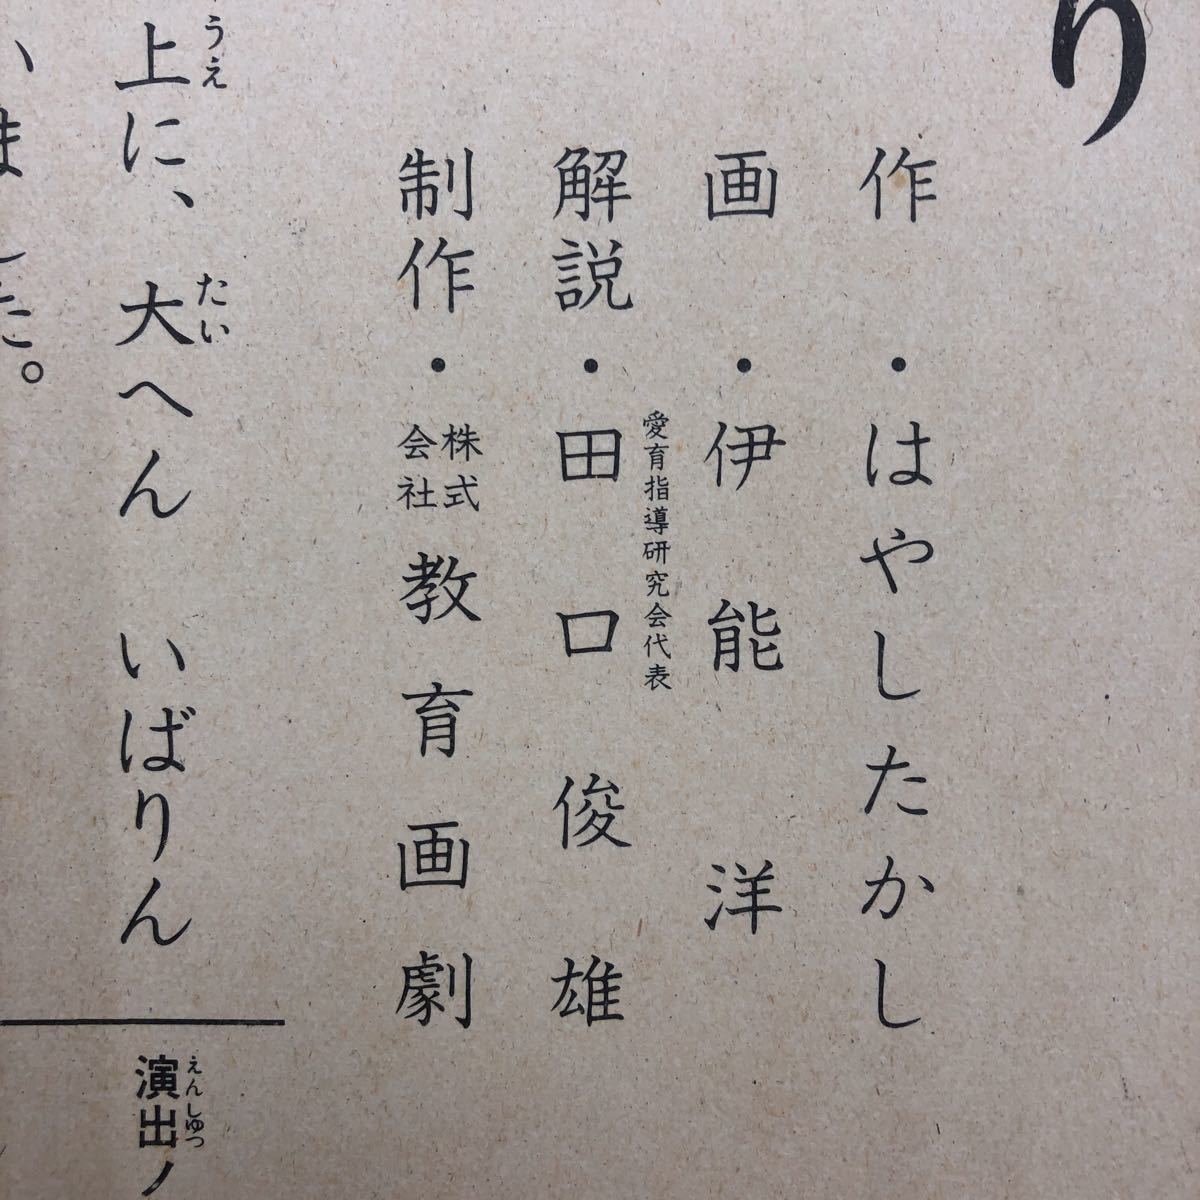 り
作・はやしたかし
画・伊能洋
愛育指導研究会代表
解説・田口俊雄
制作・株式会社教育画劇
うえ たい
上に、大へん いばりん
ました。
えんしゅつ
演出ノ